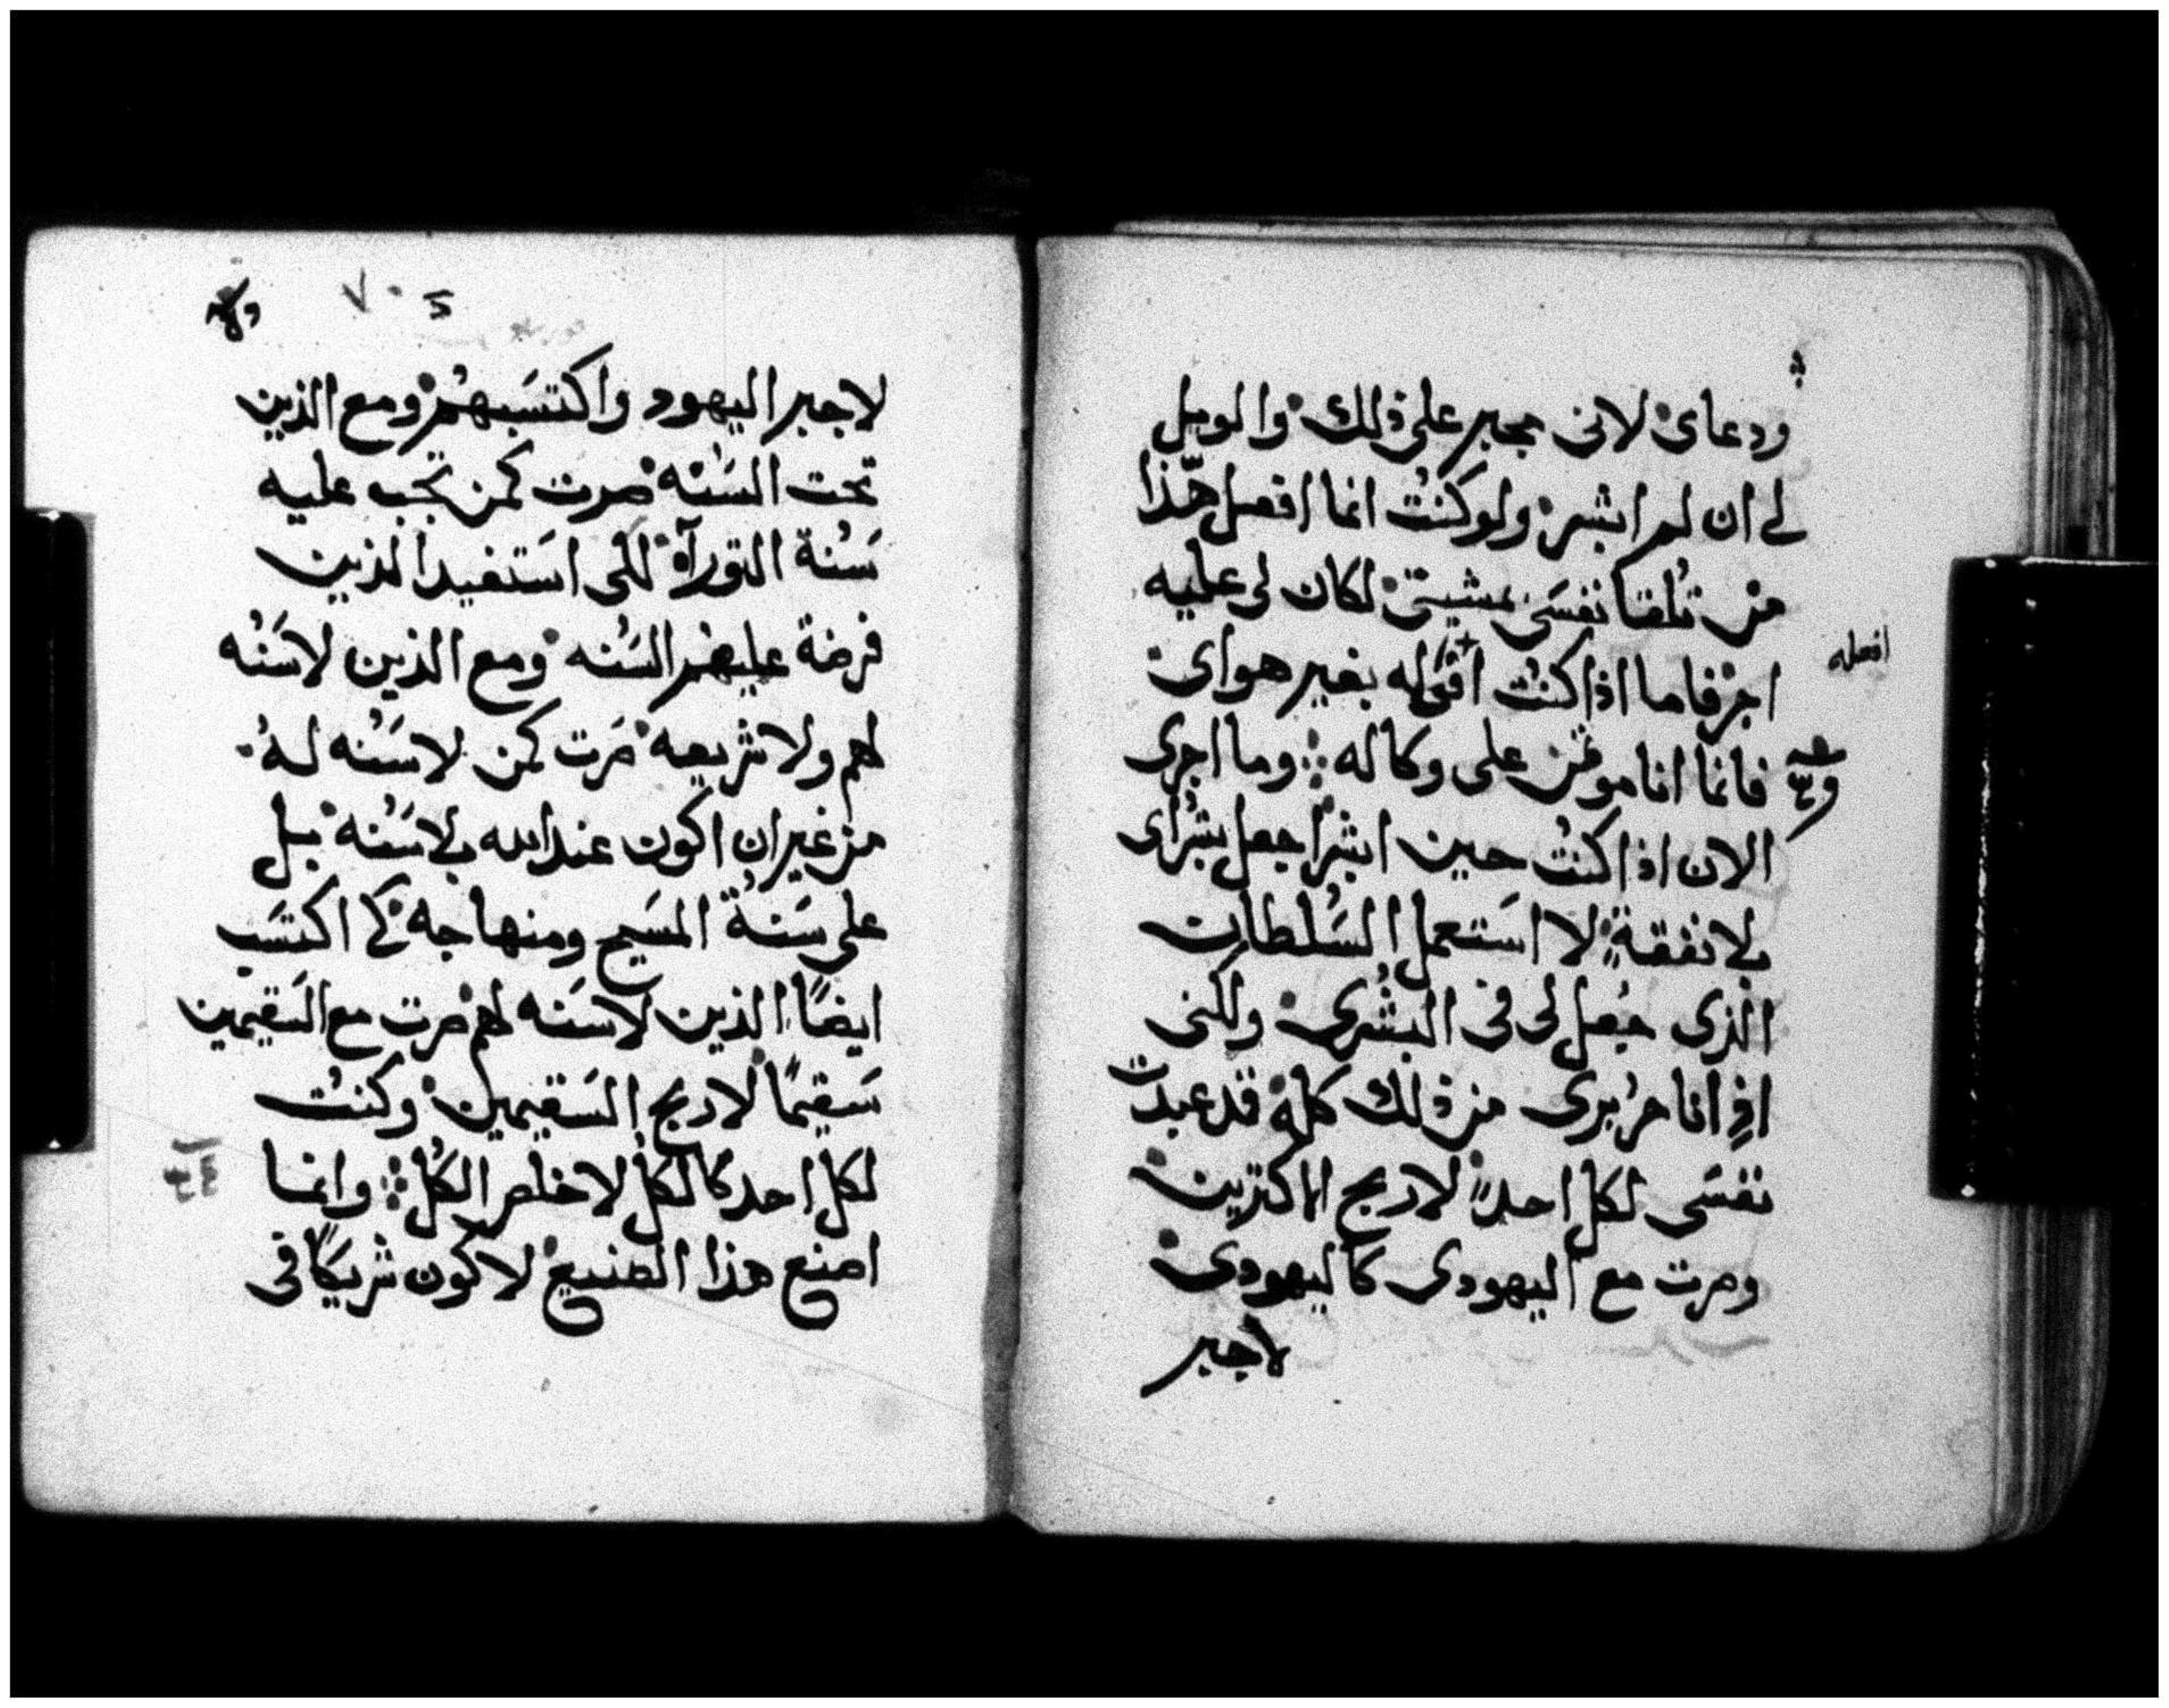 ودعاى لانى مجبر على ذلك والويل
لى ان لم ابشر ولو كنت انما افعل هذا
من تلقا نفسى بمشيتى لكان لى عليه
اجر فاما اذا كنت اقوله بغير هواى
افعله
فانما انا موتمن على وكاله وما اجرى
الان اذا كنت حين ابشر اجعل بشراى
بلا نفقة لا استعمل السلطان
الذى جعل لى فى البشرى ولكنى
اذ انا حر برى من ذلك كله قد عبدت
نفسى لكل احد لاربح الماكثرين
وصرت مع اليهودى كاليهودى
لاجبر
٧٠
لاجبر اليهود واكتسبهم ومع الذين
تحت السنه صرت كمن تجب عليه
سنة التوراة لكى استفيد الذين
فرضة عليهم السنه ومع الذين لا سنه
لهم ولا شريعه صرت كمن لا سنه له
من غير ان اكون عند الله بلا سنه بل
على سنة المسيح ومنهاجه كى اكتسب
ايضًا الذين لا سنه لهم صرت مع السقيمين
سقيمًا لاربح السقيمين وكنت
لكل احد كالكل لاخلص الكل وانما
اصنع هذا الصنيع لاكون شريكًا فى